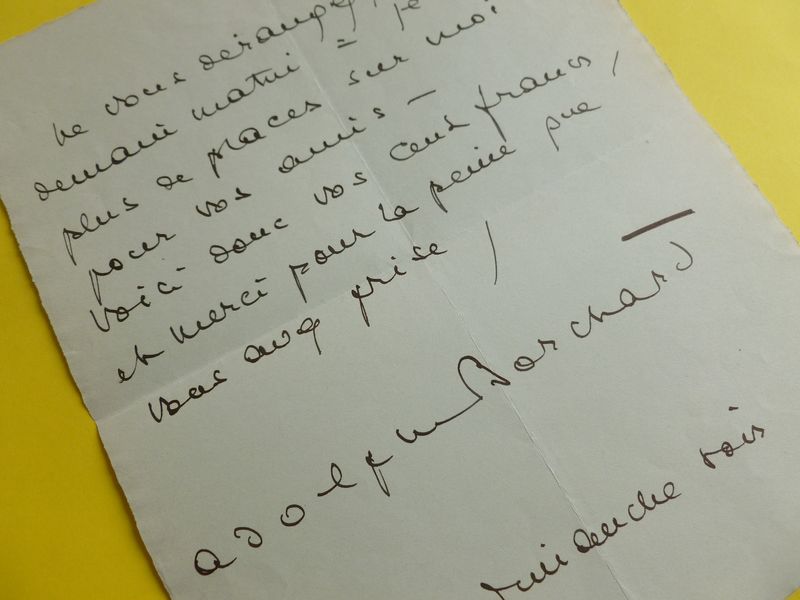 ne vous dérangez
demain matin = je
plus de places sur moi
pour vos amis —
voici donc vos cent francs,
et merci pour la peine que
vous avez prise /
adolphe Borchard
dimanche soir